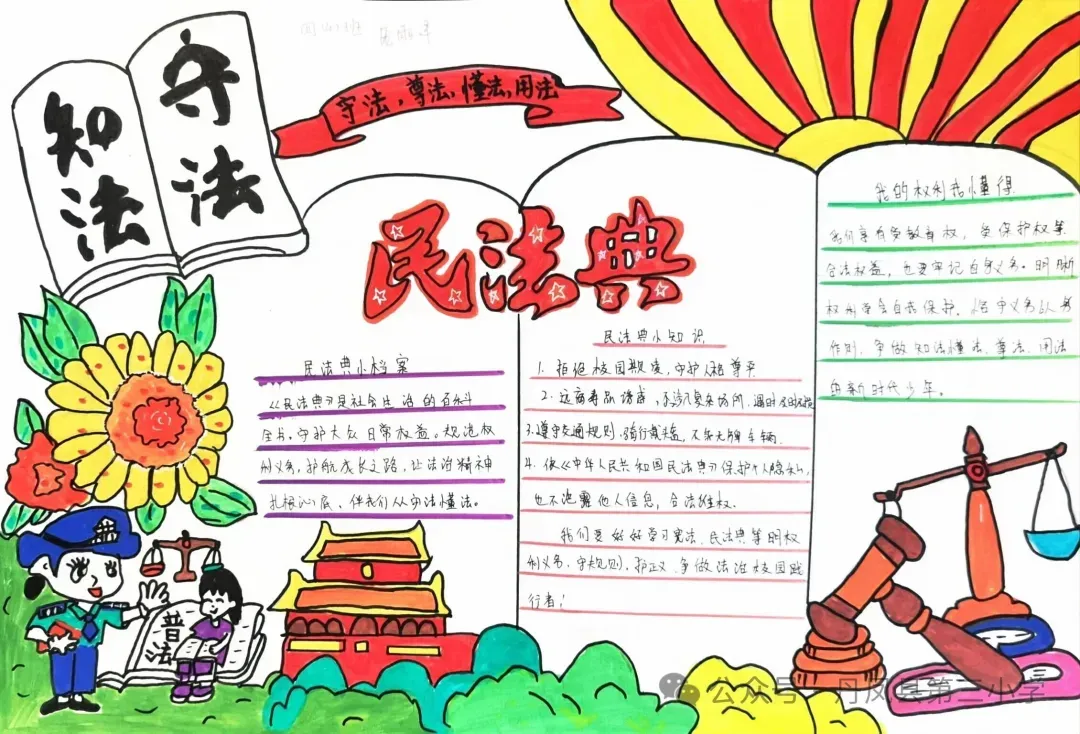 守法
知法
守法,尊法,懂法,用法
民法典
民法典小档案
《民法典》是社会生活的百科
全书,守护大众日常权益。规范权
利义务,护航成长之路,让法治精神
扎根心底,伴我们从守法懂法。
民法典小知识
1. 拒绝校园欺凌,守护人格尊严
2. 远离毒品诱惑,不涉入复杂场所,
3.遵守交通规则,骑行戴头盔,不乘无牌车辆.
4. 依《中华人民共和国民法典》保护个人隐私,
也不泄露他人信息,合法维权.
我们要好好学习宪法、民法典等明权
利义务,守规则,护正义,争做法治校园践
行者!
我的权利我懂得
我们享有受教育权,受保护权等
合法权益,也要牢记自身义务。明晰
权利学会自我保护,恪守义务认真
作则,争做知法懂法、尊法、用法
的新时代少年。
普法
公众号·丹凤县第三小学